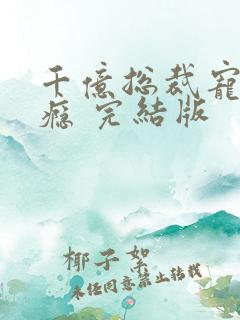 千億总裁寵
癮 完結版
椰子絮
未经同意禁止转载